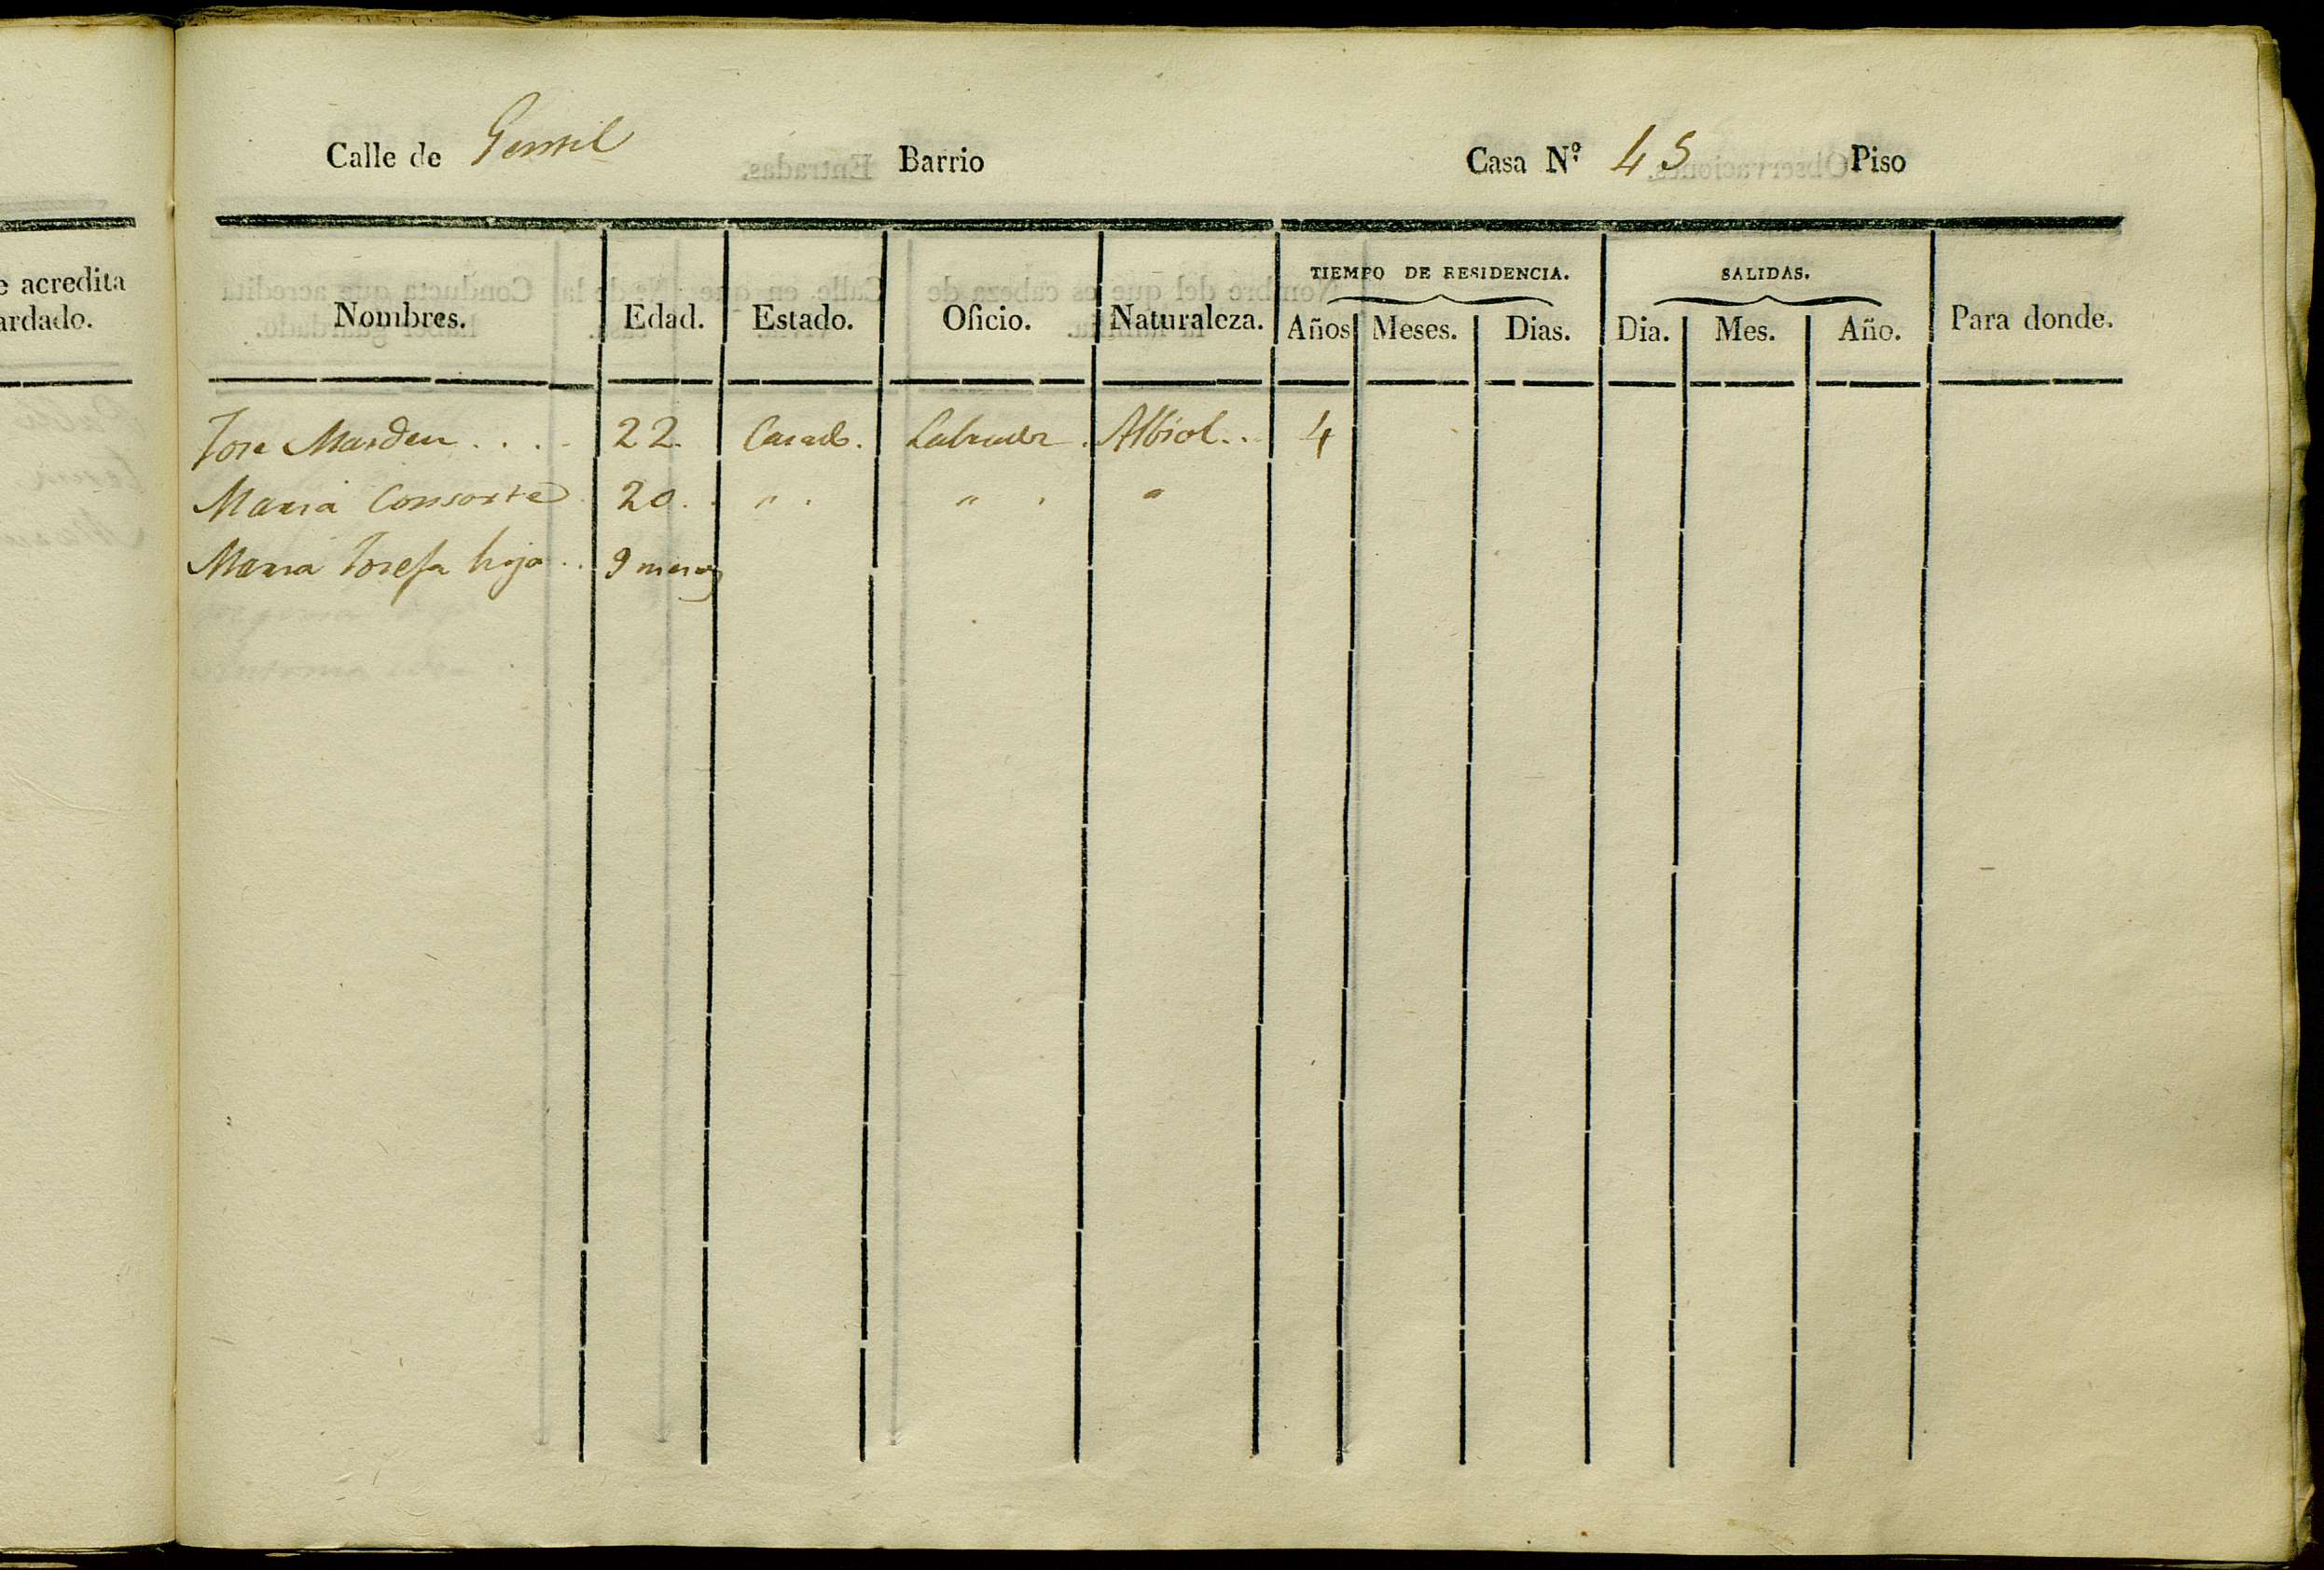 e acredita
ardado.
Calle de Barrio Casa Nº. 45 Piso
TIEMPO DE RESIDENCIA. SALIDAS.
Nombres. Edad. Estado. Oficio. Naturaleza. Años Meses. Dias. Dia. Mes. Año. Para donde.
Jose 22. Casado. Labrador. Albiol... 4
Maria Consorte 20. " . " . "
Maria Josefa hija .. 9 meses